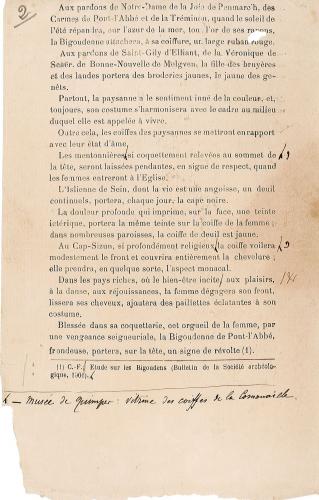 2
Aux pardons de Notre-Dame de la Joie de Penmarc'h, des
Carmes de Pont-l'Abbé et de la Tréminou, quand le soleil de
l'été répandra, sur l'azur de la mer, tout l'or de ses rayons,
la Bigoudenne attachera, à sa coiffure, un large ruban rouge.
Aux pardons de Saint-Gily d'Elliant, de la Véronique de
Scaër, de Bonne-Nouvelle de Melgven, la fille des bruyères
et des landes portera des broderies jaunes, le jaune des ge-
nêts.
Partout, la paysanne a le sentiment inné de la couleur, et,
toujours, son costume s'harmonisera avec le cadre au milieu
duquel elle est appelée à vivre.
Outre cela, les coiffes des paysannes se mettront en rapport
avec leur état d'âme.
Les mentonnières si coquettement relevées au sommet de
la tête, seront laissées pendantes, en signe de respect, quand
les femmes entreront à l'Eglise.
L'Islienne de Sein, dont la vie est une angoisse, un deuil
continuels, portera, chaque jour, la cape noire.
La douleur profonde qui imprime, sur la face, une teinte
ictérique, portera la même teinte sur la coiffe de la femme ;
dans nombreuses paroisses, la coiffe de deuil est jaune.
Au Cap-Sizun, si profondément religieux, la coiffe voilera
modestement le front et couvrira entièrement la chevelure ;
elle prendra, en quelque sorte, l'aspect monacal.
Dans les pays riches, où le bien-être incite aux plaisirs,
à la danse, aux réjouissances, la femme dégagera son front,
lissera ses cheveux, ajoutera des paillettes éclatantes à son
costume.
Blessée dans sa coquetterie, cet orgueil de la femme, par
une vengeance seigneuriale, la Bigoudenne de Pont-l'Abbé,
frondeuse, portera, sur la tête, un signe de révolte (1).
(1) C.-F. Etude sur les Bigoudens (Bulletin de la Société archéolo-
gique, 1901).
— musée de Quimper : vitrine des coiffes de la Cornouaille.